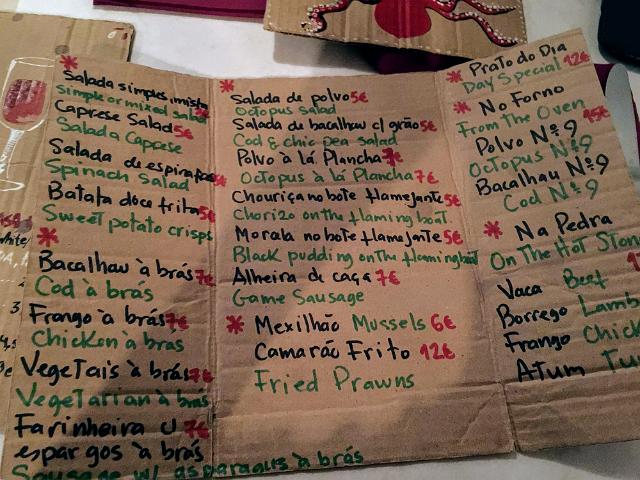 * Salada simples, mista
simple or mixed salad
Caprese Salad 5€
Salada Caprese
Salada de espinafres
Spinach Salad
Batata doce frita 5€
Sweet potato crisps
*
Bacalhau à brás 7€
Cod à brás
Frango à brás 7€
Chicken à bras
Vegetais à brás 7€
Vegetarian à bras
Farinheira c/ 7€
espargos à brás
Sausage w/ asparagus à brás
* Salada de polvo 5€
Octopus salad
Salada de bacalhau c/ grão 5€
Cod & chic pea salad
Polvo à lá Plancha 7€
Octopus à lá Plancha 7€
Chouriça no bote flamejante 5€
Chorizo on the flaming boat.
Morala no bote flamejante 5€
Black pudding on the flaming boat
Alheira de caça 7€
Game Sausage
* Mexilhão Mussels 6€
Camarão Frito 12€
Fried Prawns
* Prato do Dia
Day Special 12€
* No Forno
From The Oven
Polvo Nº9
Octopus Nº9
Bacalhau Nº9
Cod Nº9
* Na Pedra
On The Hot Stone
Vaca Beef
Borrego Lamb
Frango Chick
Atum Tu